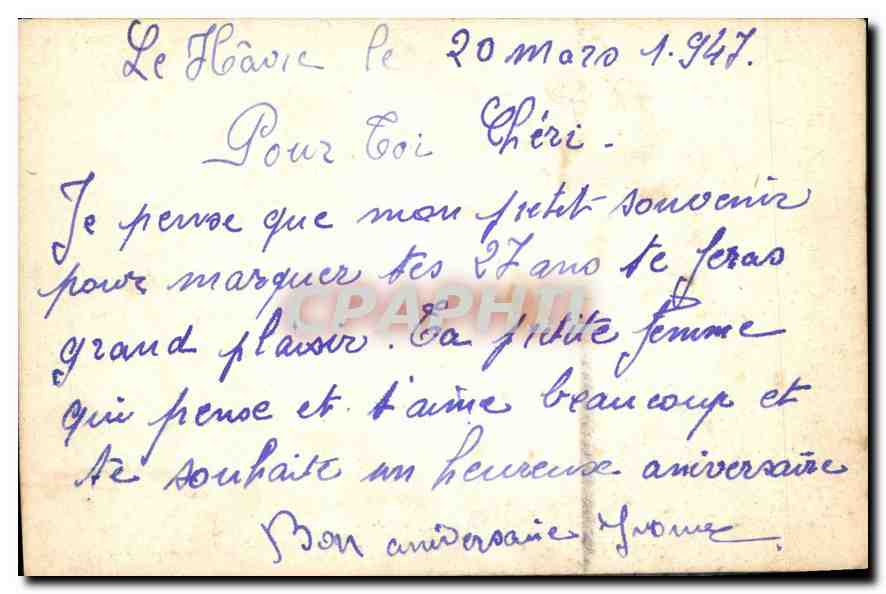 Le Hâvre le 20 mars 1.947.
Pour Toi Chéri.
Je pense que mon petit souvenir
pour marquer tes 27 ans te feras
grand plaisir. Ta petite femme
qui pense et t'aime beaucoup et
te souhaite un heureux aniversaire
Bon aniversaire Yvonne
CPAPHIL